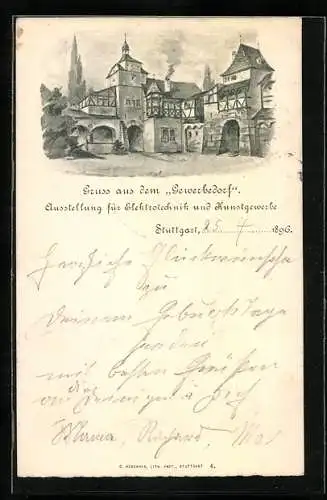 Gruss aus dem „Gewerbedorf“.
Ausstellung für Elektrotechnik und Kunstgewerbe
Stuttgart, 25. 7. 1896.
Herzliche Glückwünsche
zu
Deinem Geburtstage
senden
mit besten Grüßen
an
Mama, Richard, Max
C. HERRMANN, LITH. ANST., STUTTGART 4.